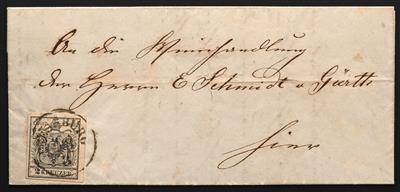 An die Weinhandlung
der Herren E Schmidt & Gürtl
hier
BURG
2 KREUZER